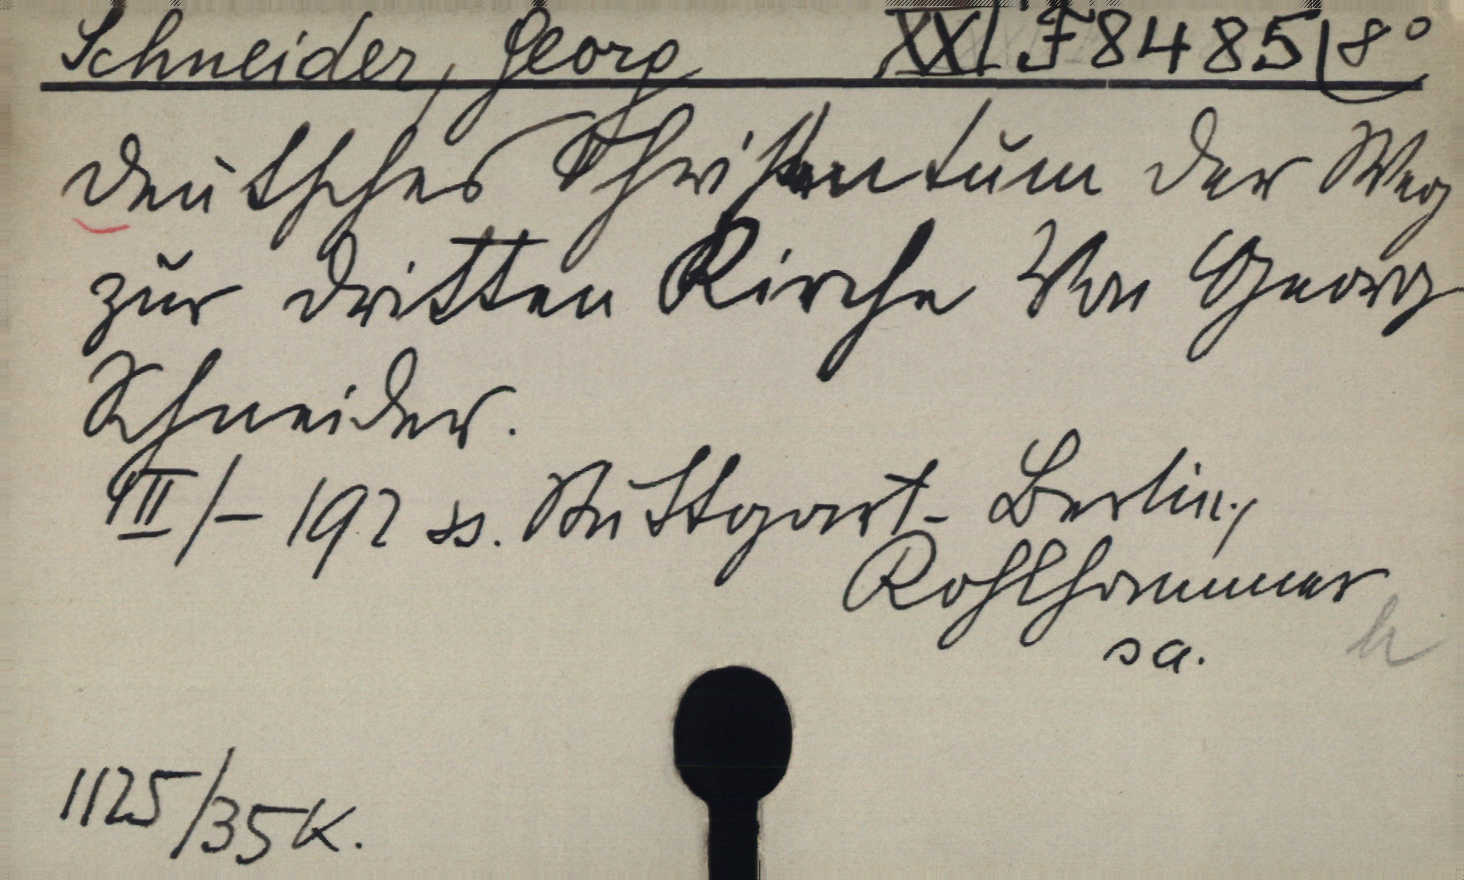 Schneider, Georg XXI. F 8485 | 8°
Deutsches Christentum der Weg
zur dritten Kirche Von Georg
Schneider.
III/- 192 ss. Stuttgart - Berlin,
Kohlhammer
sa.
h
1125/35 K.